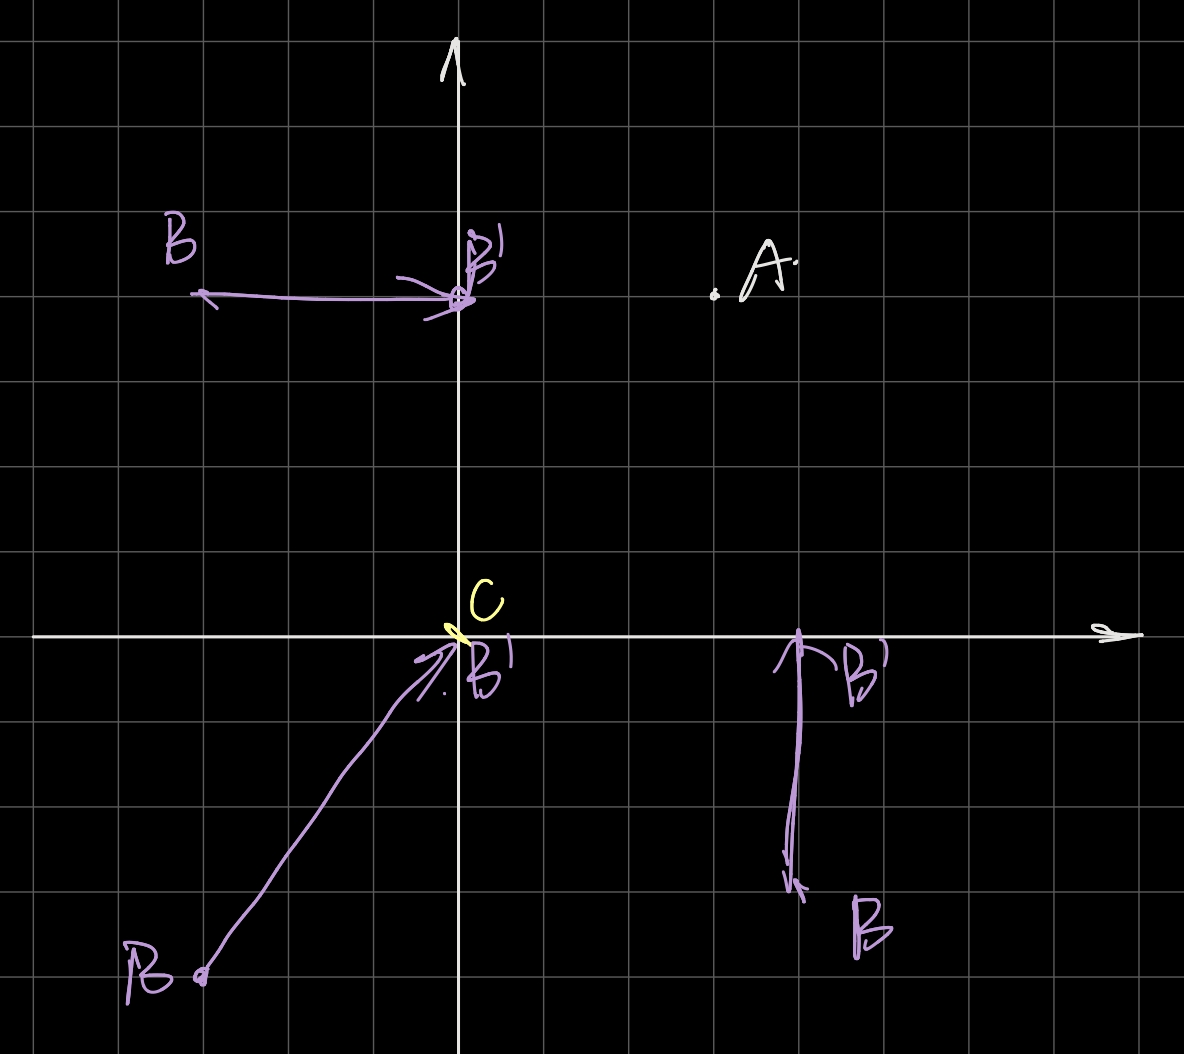 B
B'
A
C
B'
B'
B
B